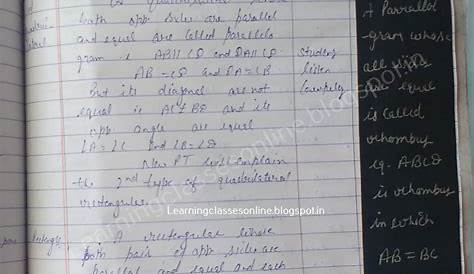 both opp sides are parallel
and equal are called parallelo
gram ie AB||CD and DA||CB
AB = CD and DA = CB
But its diagonal are not
equal ie AC ≠ BD and its
opp angle are equal
∠A = ∠C and ∠B = ∠D
Now PT will explain
the 2nd type of quadrilateral
rectangular.
Learningclassesonline.blogspot.in
A rectangular whose
both pair of opp side are
parallel and equal and each
Students
listen
Carefully
Rectangle
Parrallel
gram whose
all sides
are equal
is called
rhombus
eg. ABCD
is rhombus
in which
AB = BC
learningclassesonline.blogspot.in